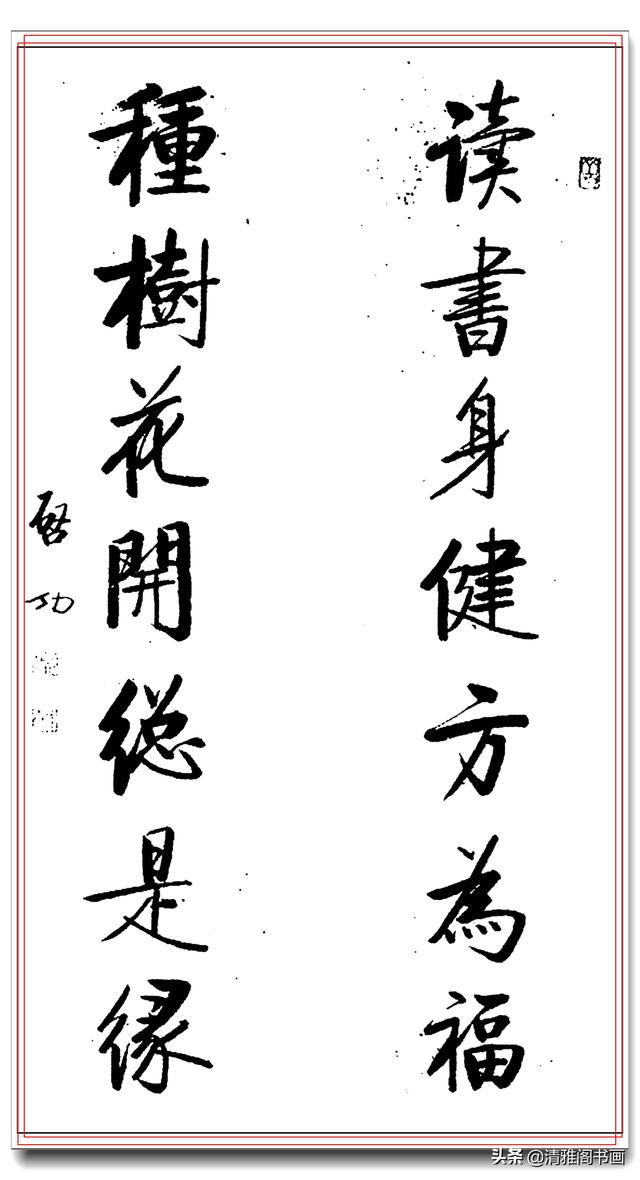 读書身健方為福
種樹花開總是緣
啓功
头条 @清雅阁书画